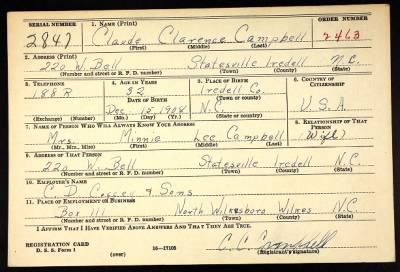 SERIAL NUMBER 1. NAME (Print) ORDER NUMBER
2847 Claude Clarence Campbell 2463
(First) (Middle) (Last)
2. ADDRESS (Print)
220 W. Bell Statesville Iredell N.C.
(Number and street or R. F. D. number) (Town) (County) (State)
3. TELEPHONE 4. AGE IN YEARS 5. PLACE OF BIRTH 6. COUNTRY OF CITIZENSHIP
188 R 32 Iredell Co.
DATE OF BIRTH (Town or county)
Dec. 15, 1908 N.C. U.S.A.
(Exchange) (Number) (Mo.) (Day) (Yr.) (State or country)
7. NAME OF PERSON WHO WILL ALWAYS KNOW YOUR ADDRESS 8. RELATIONSHIP OF THAT PERSON
Mrs. Minnie Lee Campbell (Wife)
(Mr., Mrs., Miss) (First) (Middle) (Last)
9. ADDRESS OF THAT PERSON
220 W. Bell Statesville Iredell N.C.
(Number and street or R. F. D. number) (Town) (County) (State)
10. EMPLOYER'S NAME
C. D. & Sons
11. PLACE OF EMPLOYMENT OR BUSINESS
Box 111 North Wilkesboro Wilkes N.C.
(Number and street or R. F. D. number) (Town) (County) (State)
I AFFIRM THAT I HAVE VERIFIED ABOVE ANSWERS AND THAT THEY ARE TRUE.
REGISTRATION CARD
D. S. S. Form 1 16—17105 C. C. Campbell
(over) (Registrant's signature)